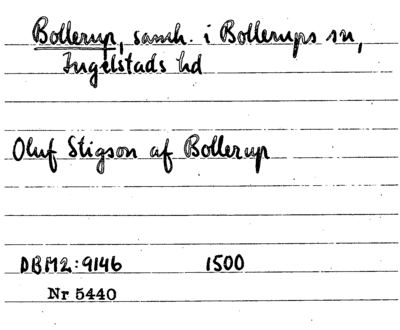 Bollerup, samh. i Bollerups sn,
Ingelstads hd
Oluf Stigson af Bollerup
DBM2:9146 1500
Nr 5440